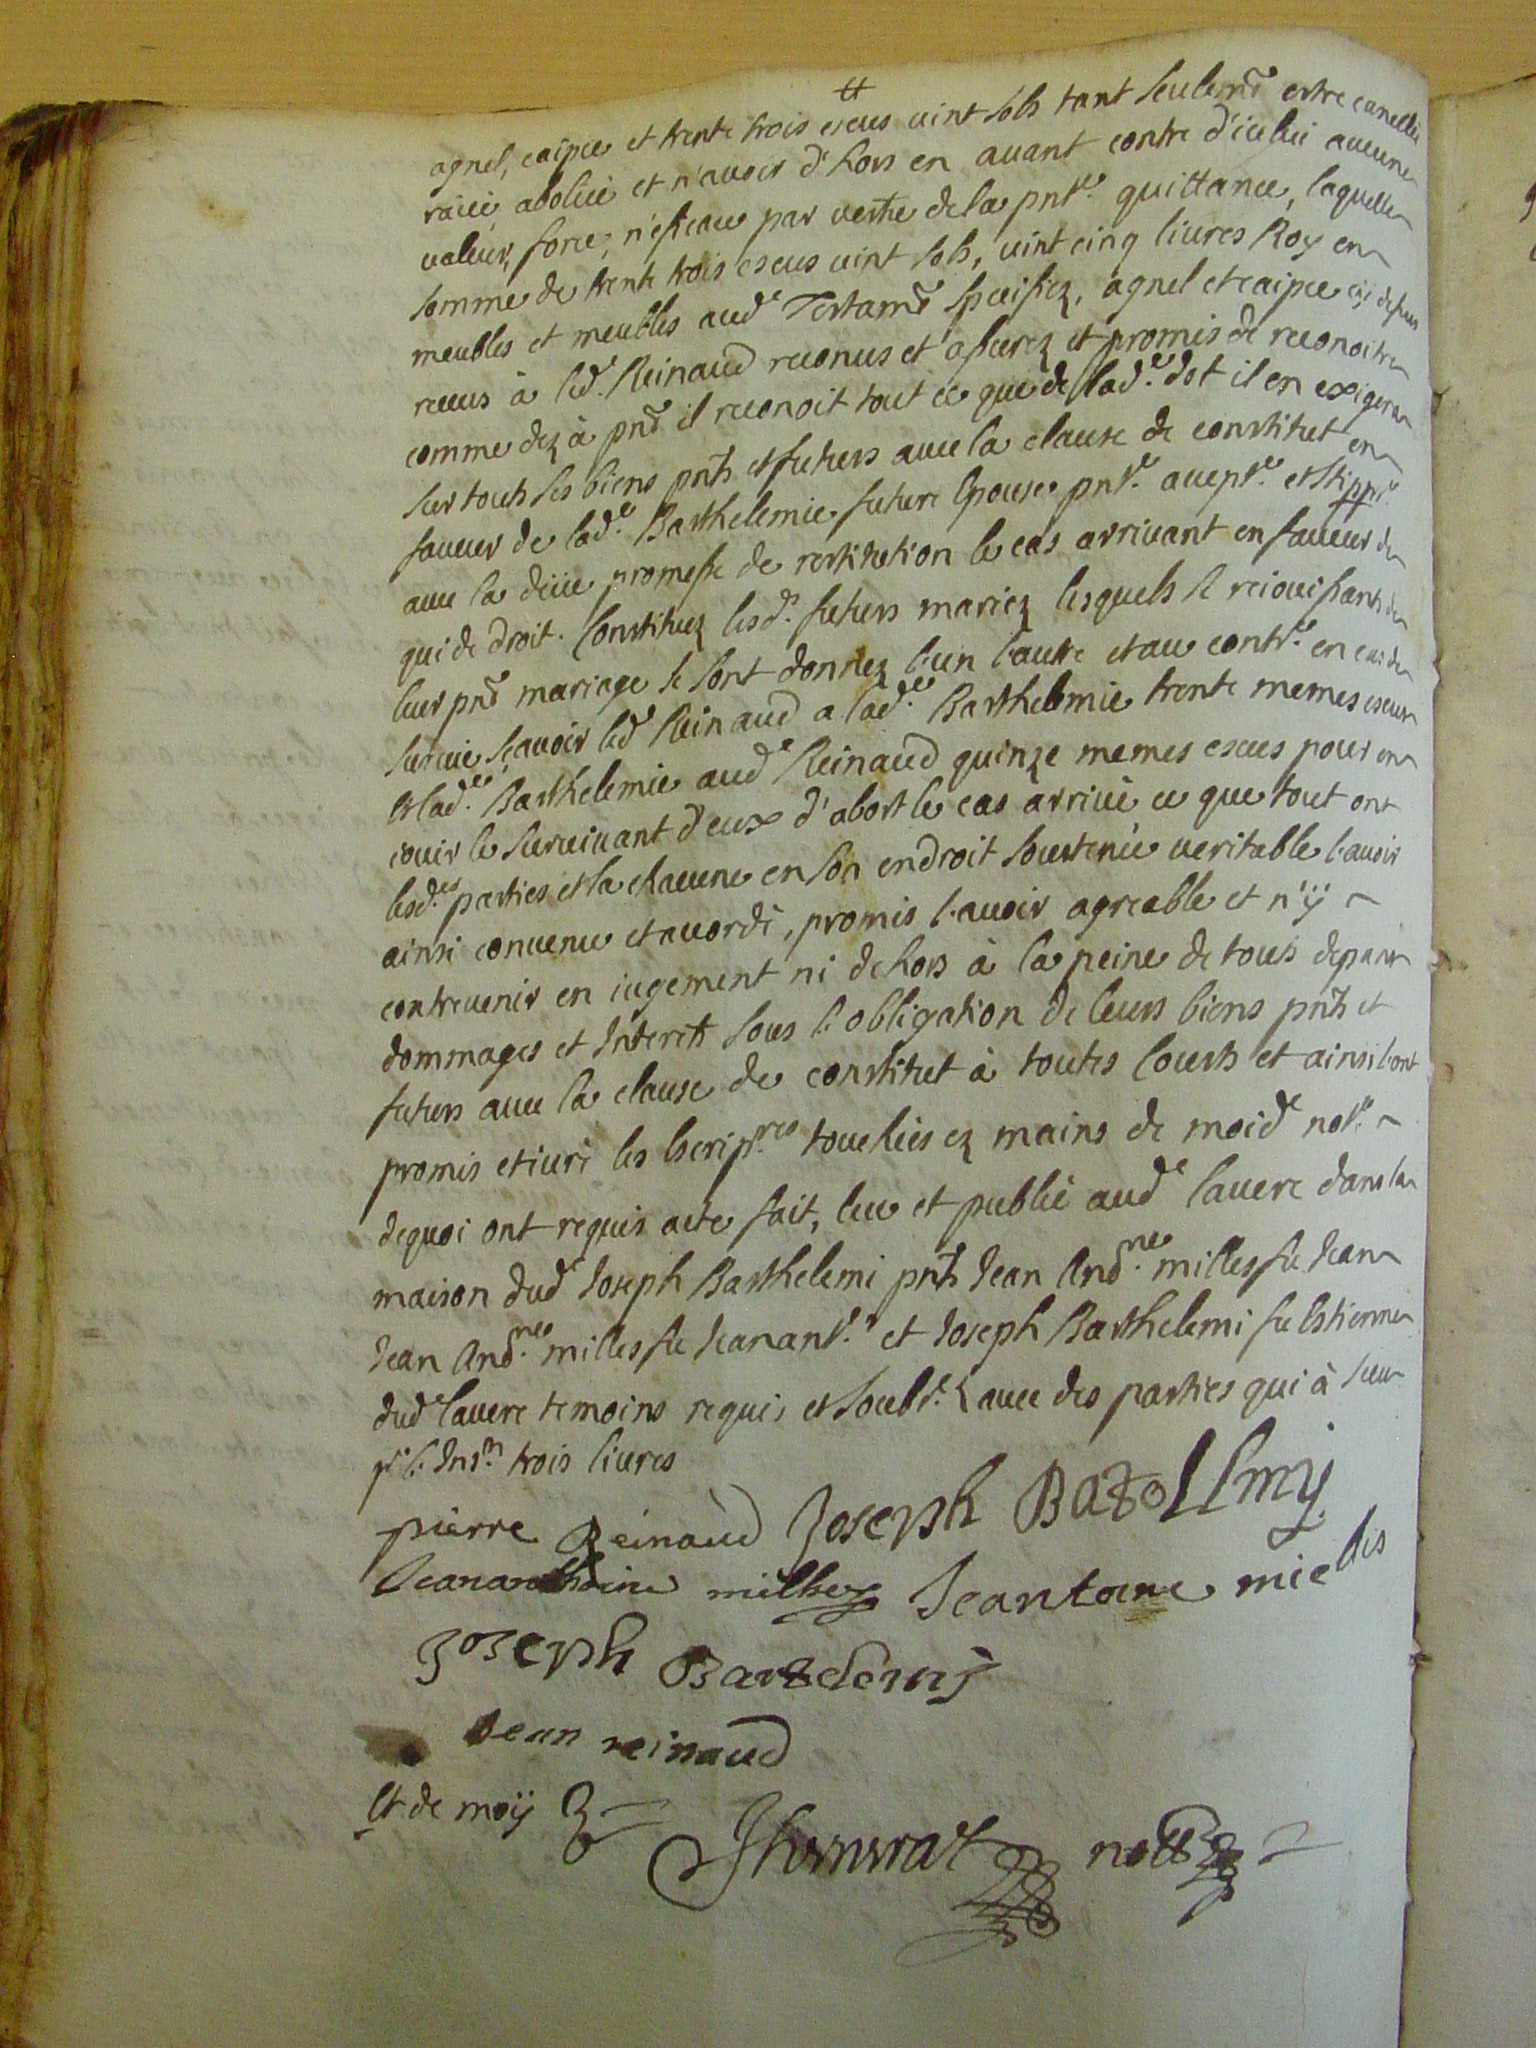 agnel, caipce et trente trois escus vint sols tant seulem̃t estre cancellée
raiée abolie et n'avoir d'hors en avant contre d'icelui aucune
valeur, force, n'eficace par vertu de la pnt.e quittance, laquelle
somme de trente trois escus vint sols, vint cinq livres Roy en
meubles et meubles aud.e Testam̃t specifiez, agnel et caipce cy dessus
receus à led. Reinaud reconus et assurez et promis de reconoitre
comme dez à pnt il reconoit tout ce que de lad.e dot il en exigera
sur touts ses biens pnts et futurs avec la clause de constitut en
faveur de lad.e Barthelemie future epouse pnt.e accept.e et stipp.te
avec la deüe promesse de restitution le cas arrivant en faveur de
qui de droit. Constituez lesd.s futurs mariez lesquels se reiouissants de
leur pnt mariage se sont donnez l'un l'autre et au contr.e en cas de
survie, sçavoir led Reinaud a lad.e Barthelemie trente memes escus
et lad.e Barthelemie aud.e Reinaud quinze memes escus pour en
iouir le survivant d'eux d'abort le cas arrivé ce que tout ont
lesd.es parties et la chacune en son endroit soustenu veritable l'avoir
ainsi convenu et acordé, promis l'avoir agreable et n'ÿ
contrevenir en iugement ni dehors à la peine de touts depans
dommages et Interets sous l'obligation de leurs biens pnts et
futurs avec la clause de constitut à toutes Cours et ainsi l'ont
promis et iuré les escript.res touchées ez mains de moid.e not.e
dequoi ont requis acte fait, leu et publié aud.e lavere dans la
maison dud.e Joseph Barthelemi pnts Jean And.ne milles fu Jean
Jean And.ne milles fu Jean ant.e et Joseph Barthelemi fu Estienne
dud.e lavere temoins requis et soubs.és avec des parties qui à sceu
p.r l'Ins.n trois livres
pierre Reinaud Joseph Batollmy
Jeananthoine milhes Jeantoine mielles
Joseph Bartelemy
Jean reinaud
Et de moÿ
Honorat nott.re